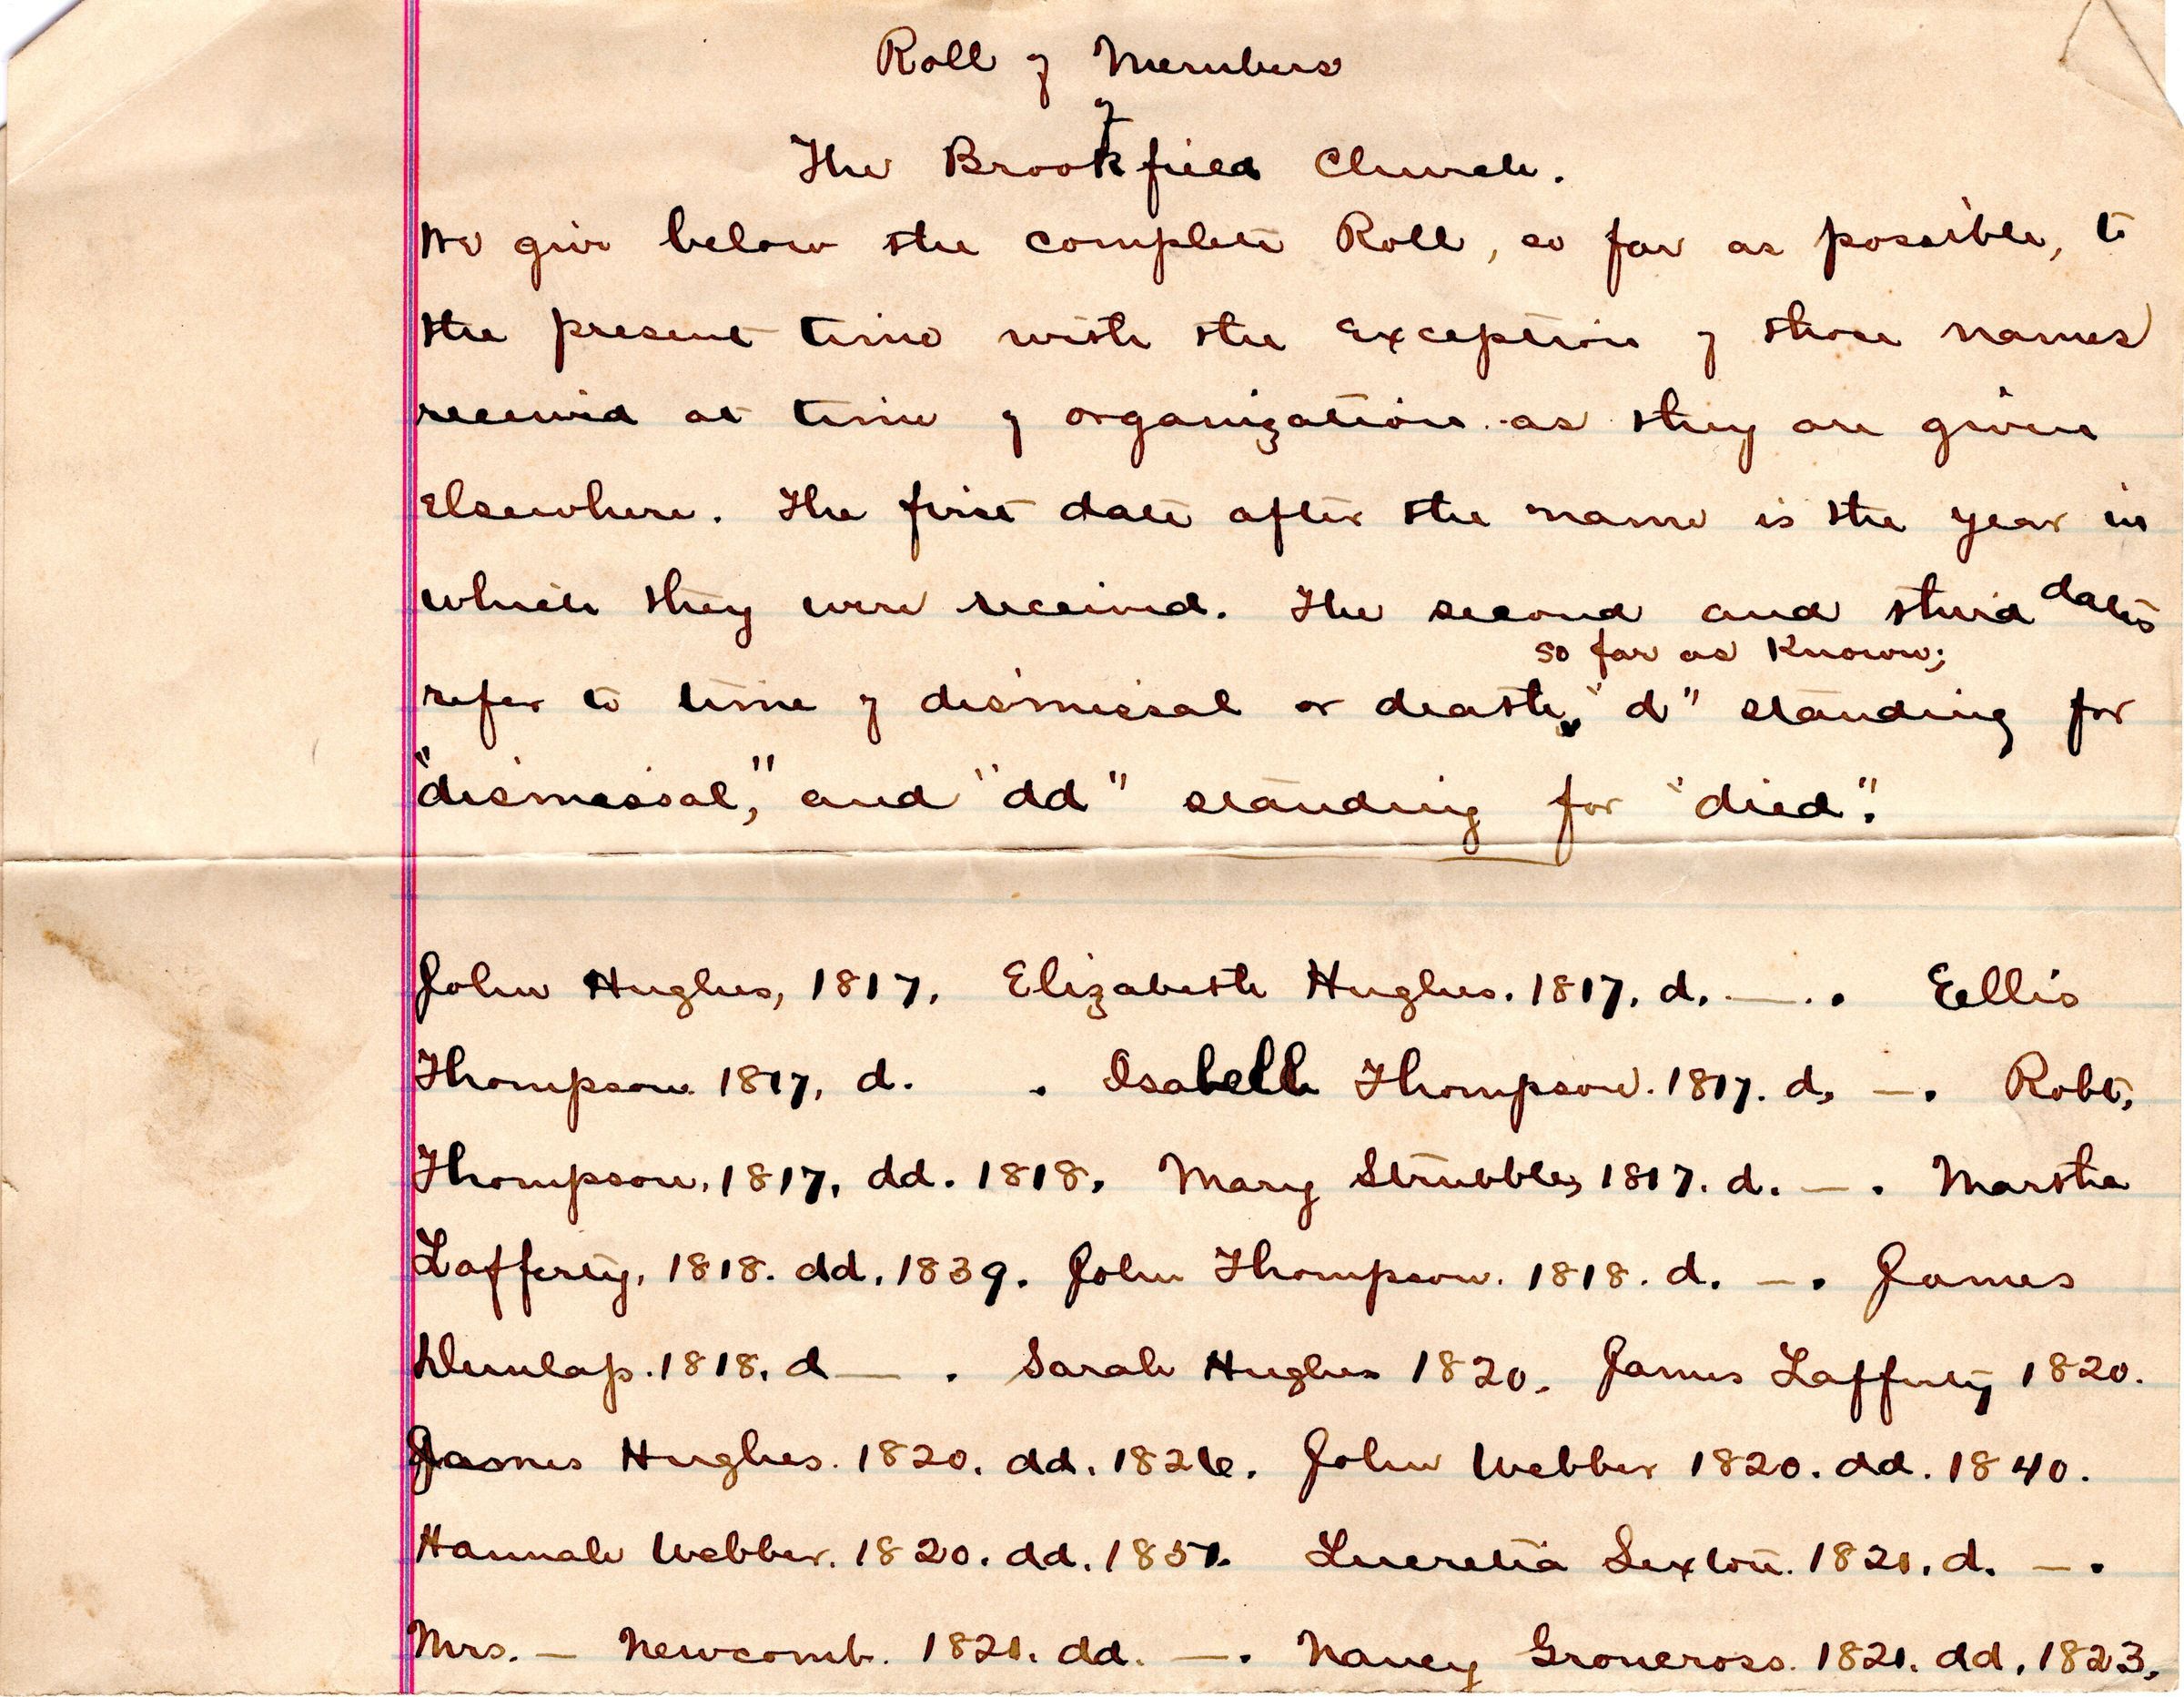 Roll of Members
of
The Brookfield Church.
We give below the complete Roll, so far as possible, to
the present time with the exception of those names
received at time of organization as they are given
elsewhere. The first date after the name is the year in
which they were received. The second and third dates
so far as known;
refer to time of dismissal or death, "d" standing for
"dismissal," and "dd" standing for "died".
John Hughes, 1817. Elizabeth Hughes. 1817. d. —. Eellis
Thompson 1817, d. . Isabell Thompson. 1817. d. —. Robt,
Thompson, 1817, dd. 1818. Mary Strubble, 1817. d. —. Martha
Lafferty, 1818. dd. 1839. John Thompson. 1818. d. —. James
Dunlap. 1818. d — . Sarah Hughes 1820. James Lafferty 1820.
James Hughes. 1820. dd. 1826. John Webber 1820. dd. 1840.
Hannah Webber. 1820. dd. 1857. Lucretia Sexton. 1821. d. —.
Mrs. — Newcomb. 1821. dd. —. Nancy Groncross. 1821. dd. 1823.